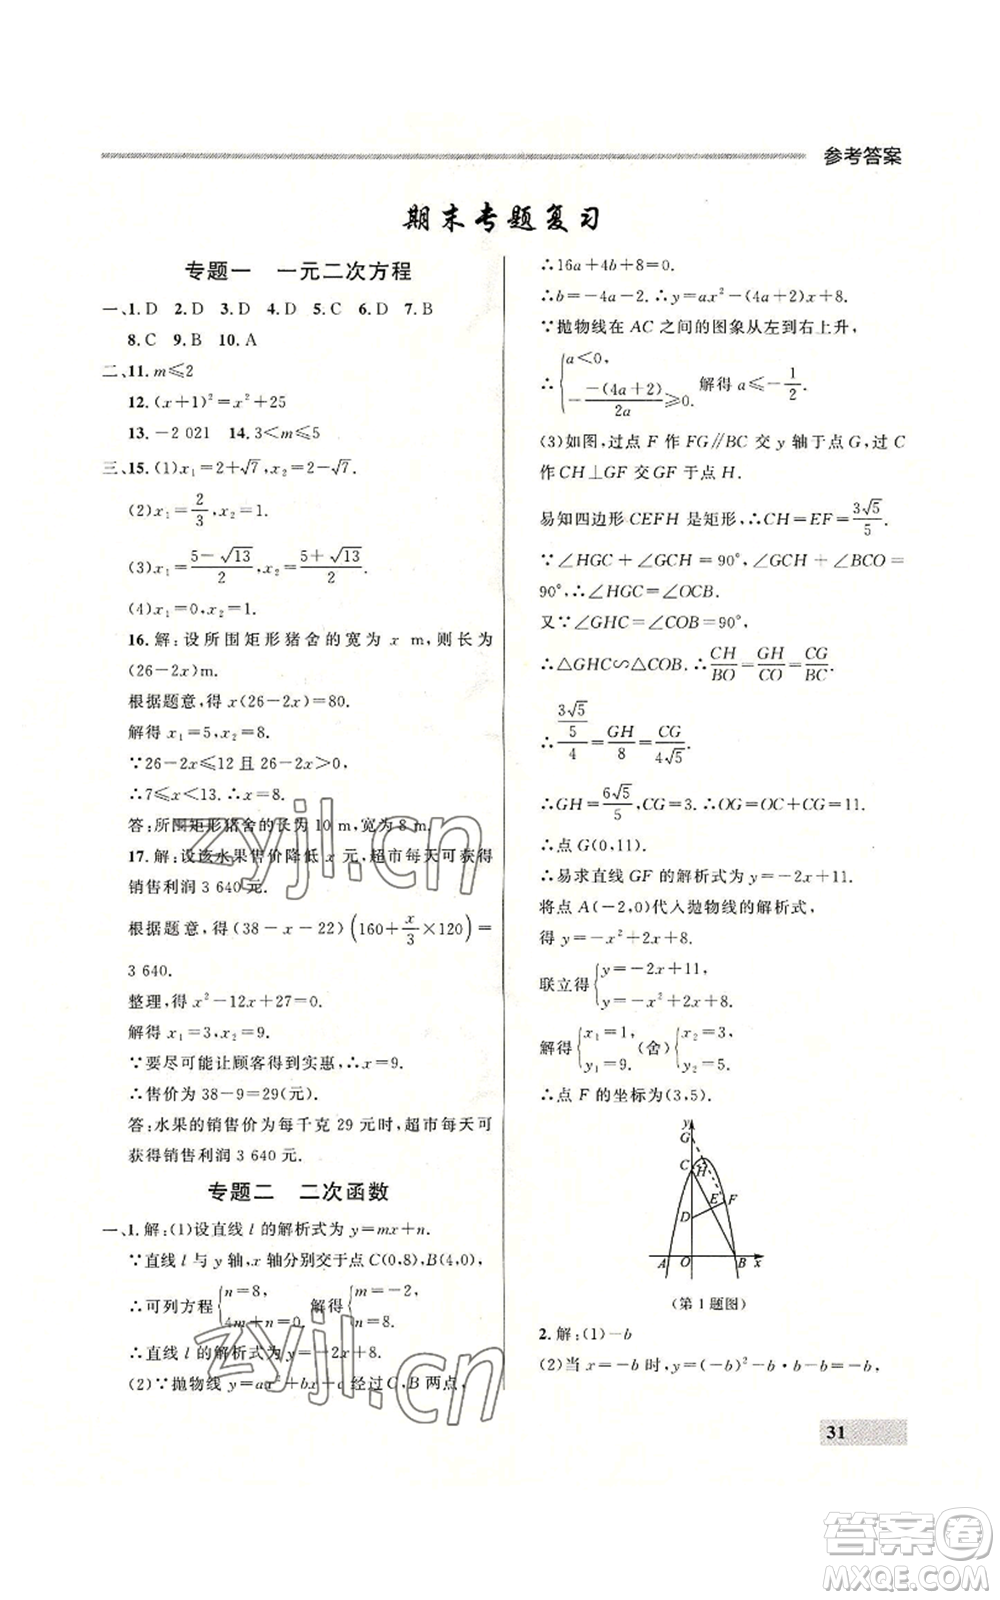 参考答案
期末专题复习
专题一 一元二次方程
一、1. D 2. D 3. D 4. D 5. C 6. D 7. B
8. C 9. B 10. A
二、11. m≤2
12. (x+1)²=x²+25
13. -2 021 14. 3<m≤5
三、15. (1)x₁=2+√7, x₂=2-√7.
(2)x₁=2/3, x₂=1.
(3)x₁=(5-√13)/2, x₂=(5+√13)/2.
(4)x₁=0, x₂=1.
16. 解:设所围矩形猪舍的宽为 x m,则长为
(26-2x)m.
根据题意,得 x(26-2x)=80.
解得 x₁=5, x₂=8.
∵26-2x≤12 且 26-2x>0,
∴7≤x<13. ∴x=8.
答:所围矩形猪舍的长为 10 m,宽为 8 m.
17. 解:设该水果售价降低 x 元,超市每天可获得
销售利润 3 640 元.
根据题意,得(38-x-22)(160+x/3×120)=
3 640.
整理,得 x²-12x+27=0.
解得 x₁=3, x₂=9.
∵要尽可能让顾客得到实惠,∴x=9.
∴售价为 38-9=29(元).
答:水果的销售价为每千克 29 元时,超市每天可
获得销售利润 3 640 元.
专题二 二次函数
一、1. 解:(1)设直线 l 的解析式为 y=mx+n.
∵直线 l 与 y 轴,x 轴分别交于点 C(0,8),B(4,0),
∴可列方程{n=8, 4m+n=0. 解得{m=-2, n=8.
∴直线 l 的解析式为 y=-2x+8.
(2)∵抛物线 y=ax²+bx+8 经过 C,B 两点,
∴16a+4b+8=0.
∴b=-4a-2. ∴y=ax²-(4a+2)x+8.
∵抛物线在 AC 之间的图象从左到右上升,
∴{a<0, -(-(4a+2))/2a≥0. 解得 a≤-1/2.
(3)如图,过点 F 作 FG∥BC 交 y 轴于点 G,过 C
作 CH⊥GF 交 GF 于点 H.
易知四边形 CEFH 是矩形,∴CH=EF=3√5/5.
∵∠HGC+∠GCH=90°,∠OCB+∠BCO=
90°,∴∠HGC=∠OCB.
又∵∠GHC=∠COB=90°,
∴△GHC∽△COB. ∴CH/BO=GH/CO=CG/BC.
∴(3√5/5)/4=GH/8=CG/4√5.
∴GH=6√5/5, CG=3. ∴OG=OC+CG=11.
∴点 G(0,11).
∴易求直线 GF 的解析式为 y=-2x+11.
将点 A(-2,0)代入抛物线的解析式,
得 y=-x²+2x+8.
联立得{y=-2x+11, y=-x²+2x+8.
解得{x₁=1, y₁=9. (舍){x₂=3, y₂=5.
∴点 F 的坐标为(3,5).
y
G
C
H
E
F
D
A
O
B
x
(第 1 题图)
2. 解:(1)-b
(2)当 x=-b 时,y=(-b)²-b·b-b=-b,
31
zyjl.cn
zyjl.cn
答案卷
MXQE.COM